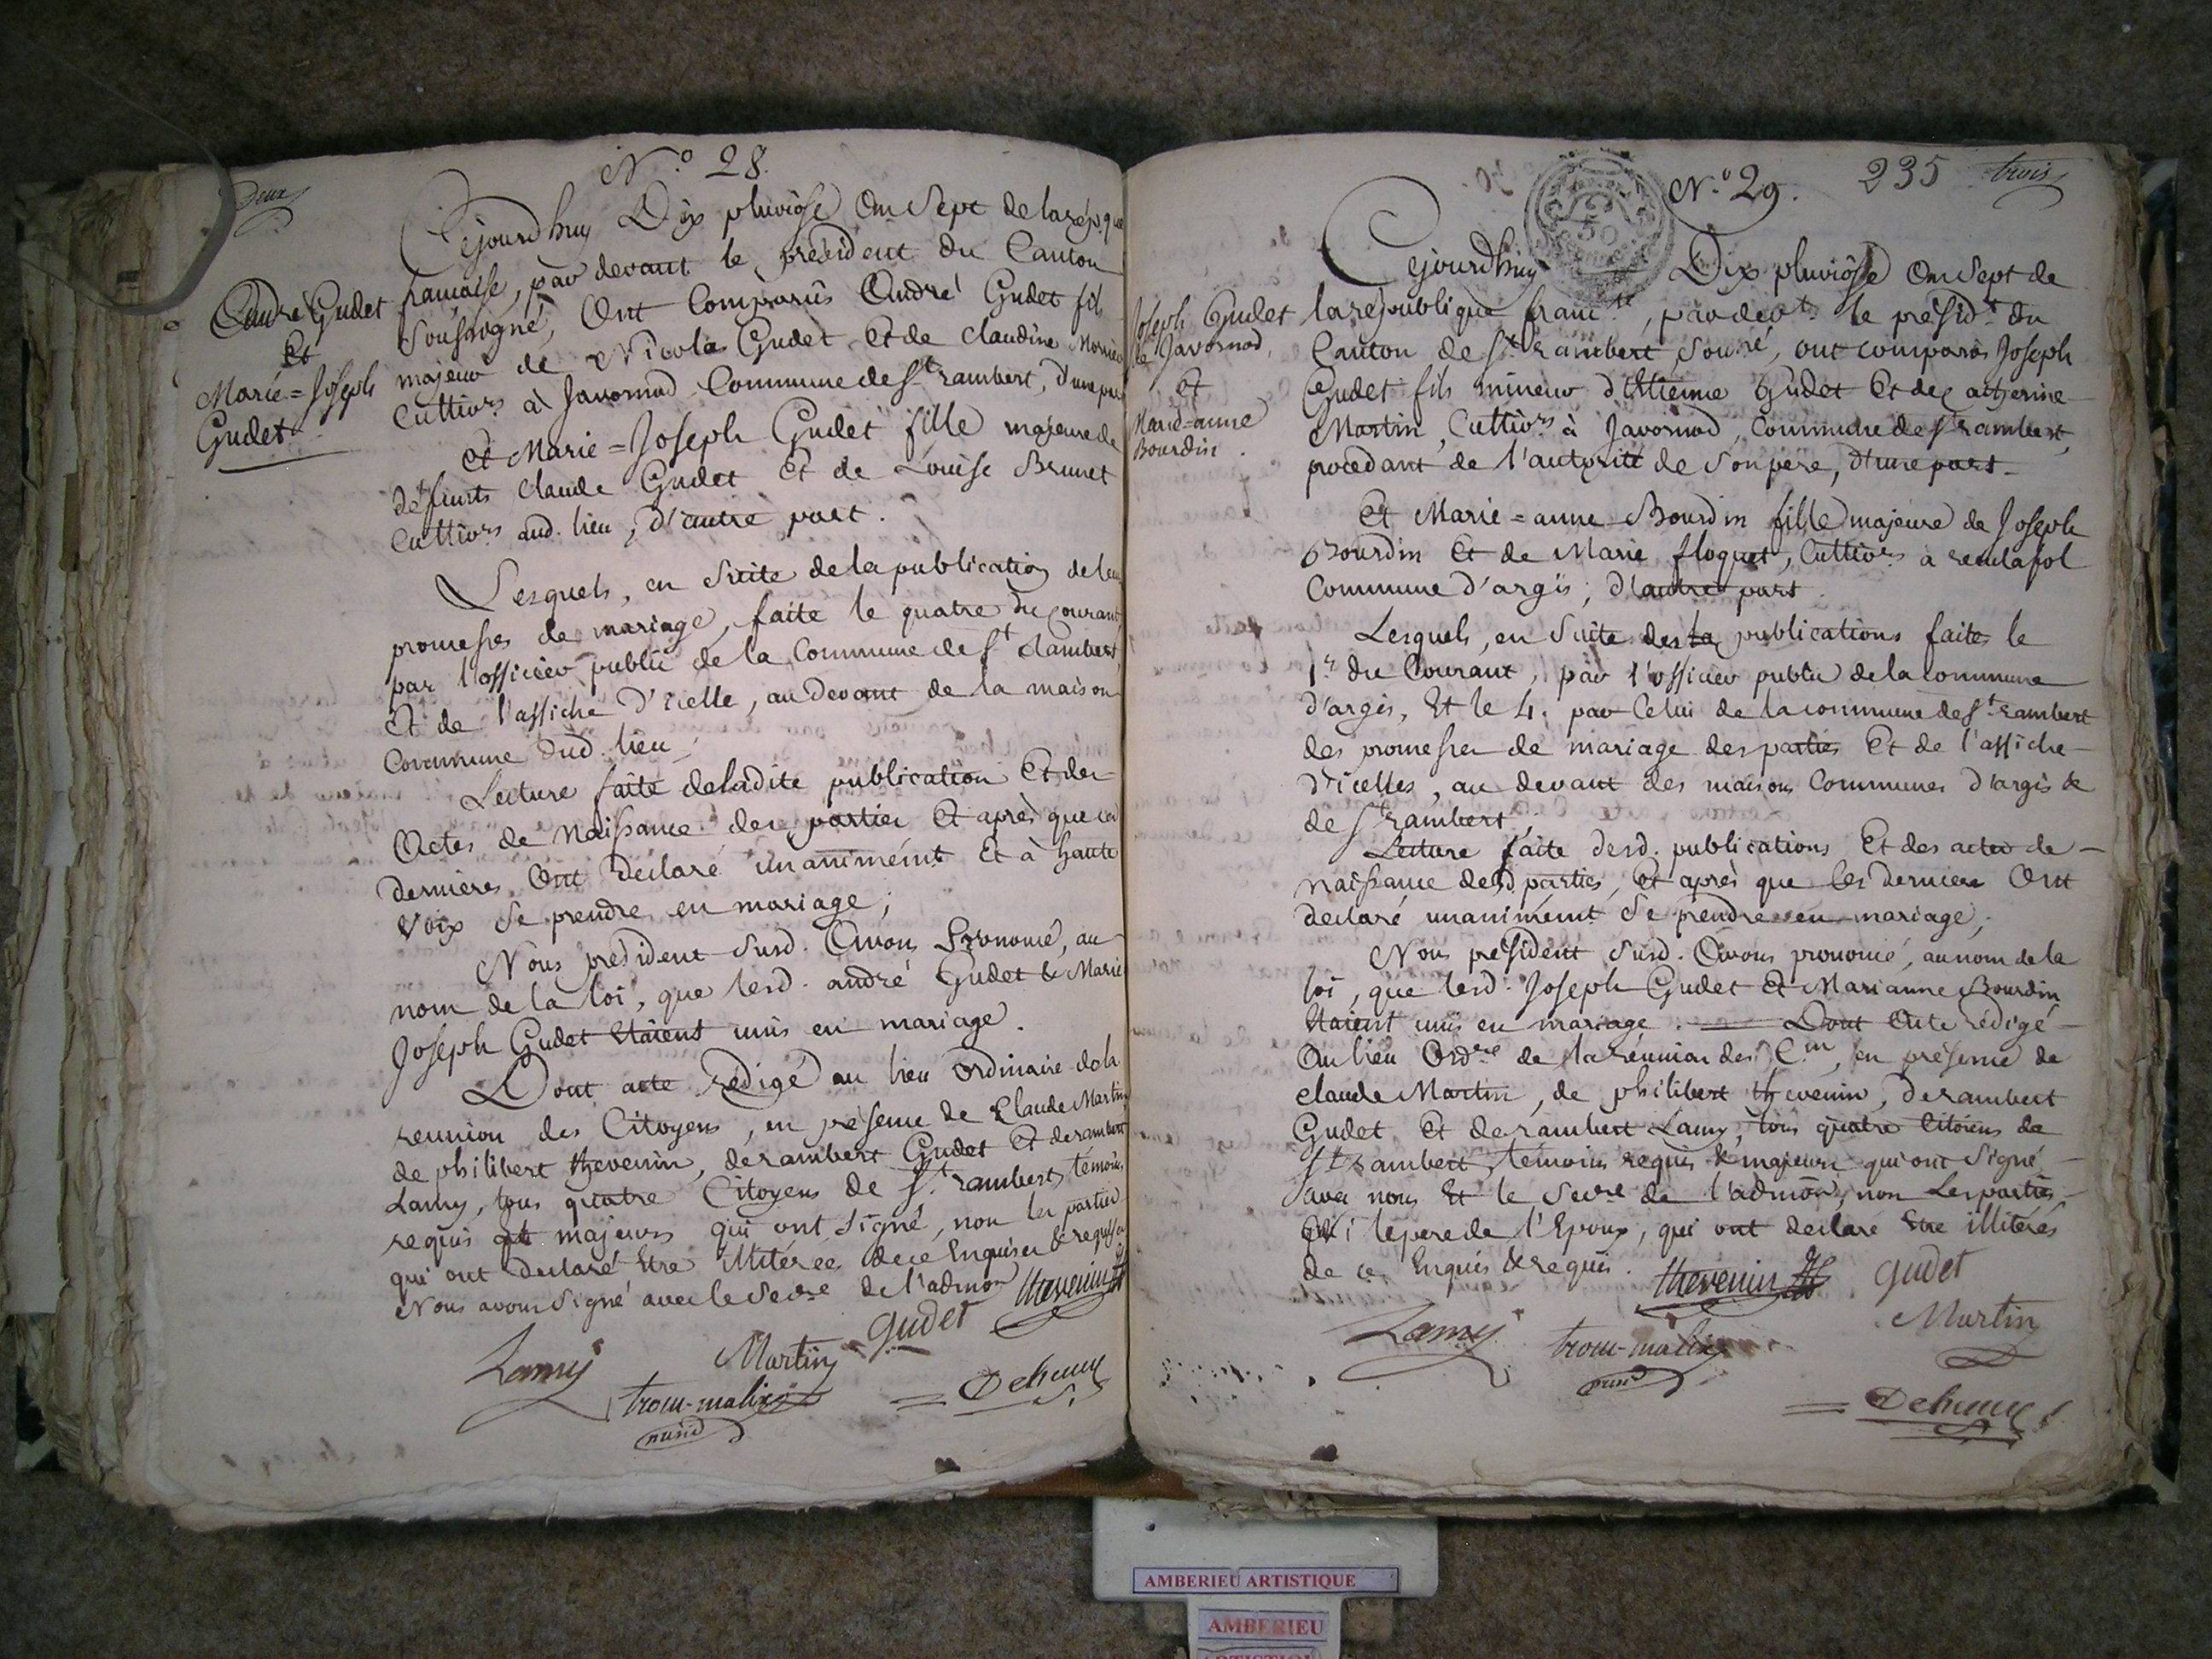 deux
N.o 28.
André Gudet
et
Marie=Joseph
Gudet
Cejourdhuy Dix pluviôse an Sept de la répque
française, par devant le président du Canton
Soussigné, Ont Comparûs André Gudet fils
majeur de Nicolas Gudet et de claudine
Cultivrs à Javornod Commune de St rambert, d'une part
et Marie=Joseph Gudet fille majeure de
défunts claude Gudet et de Louise Brunet
Cultivrs aud. lieu, d'autre part.
Lesquels, en Suite de la publication de leurs
promesses de mariage, faite le quatre du courant
par l'officier public de la Commune de St Rambert,
et de l'affiche d'icelle, au devant de la maison
Commune dud. lieu;
Lecture faite de ladite publication et des
Actes de Naissance des parties et après que ces
dernieres Ont déclaré unanimémt et à haute
voix Se prendre en mariage;
Nous président Susd. Avons Prononcé, au
nom de la loi, que lesd. andré Gudet & Marie
Joseph Gudet Etaient unis en mariage.
Dont acte rédigé au lieu ordinaire de la
reunion des Citoyens, en présence de Claude Martin,
de philibert thevenin, de rambert Gudet et de rambert
Lamy, tous quatre Citoyens de St. rambert, témoins
requis et majeurs qui ont signé, non les parties
qui ont declaré Etre illitérées de ce Enquises & requises
Nous avons Signé avec le Secre de l'admon thevenin
Lamy Martin gudet
trocu-malix Dehuue
prsid
N.o 29. 235 trois
Joseph Gudet
de Javornod,
et
Marie=anne
Bourdin.
Cejourdhuy Dix pluviôse an Sept de
la republique francse, par devt le présidt du
Canton de St rambert Souné, ont comparûs Joseph
Gudet fils mineur d'Etienne Gudet et de catherine
Martin, Cultivrs à Javornod, Commune de St rambert,
procédant de l'autorité de Son père, d'une part
Et Marie=anne Bourdin fille majeure de Joseph
Bourdin et de Marie floquet, Cultivrs à reculafol
Commune d'argis; d'autre part.
Lesquels, en Suite des la publications faites le
1er du Courant, par l'officier public de la commune
d'argis, Et le 4. par Celui de la commune de St rambert
des promesses de mariage des parties Et de l'affiche
d'icelles, au devant des maisons Communes d'argis &
de St rambert.
Lecture faite desd. publications Et des actes de
naissance desd parties, et après que les dernieres Ont
declaré unanimémt Se prendre en mariage;
Nous président Susd. Avons prononcé, au nom de la
loi, que lesd. Joseph Gudet et Marianne Bourdin
Etaient unis en mariage. Dont Acte rédigé
Au lieu Ordre de la réunion des Cens, en présence de
claude Martin, de philibert thevenin, de rambert
Gudet et de rambert Lamy, tous quatre Citoiens de
St rambert, témoins requis & majeurs qui ont Signé
avec nous Et le Secre de l'admon, non Les parties
ni le pere de l'Epoux, qui ont declaré Etre illitérés
de ce Enquis & requis. thevenin gudet
Lamy trocu-malix Martin
prsid
Dehuue
AMBERIEU ARTISTIQUE
AMBERIEU
ARTISTIQUE